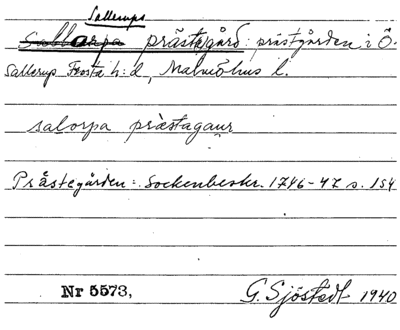 Sallerups
Sallarpa prästagård: prästgården i Ö.
Sallerup Frosta h:d, Malmöhus l.
salorpa præstagaur
Prästegården: Sockenbeskr. 1746-47 s. 154
Nr 5573, G. Sjöstedt 1940